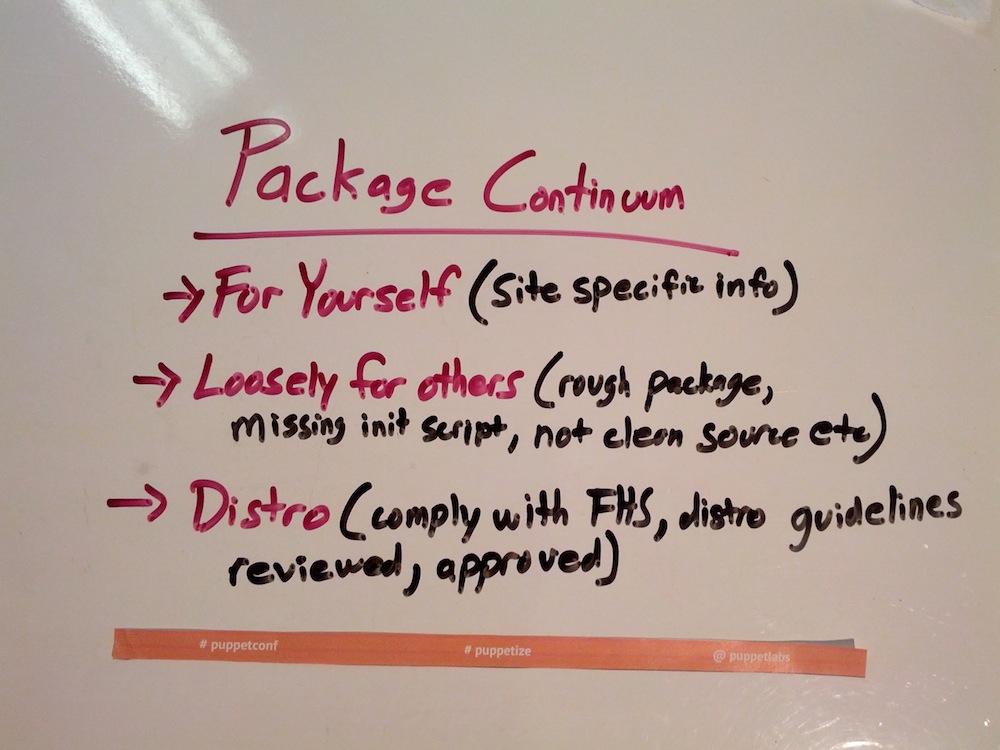 Package Continuum
→ For Yourself (Site specific info)
→ Loosely for others (rough package,
missing init script, not clean source etc)
→ Distro (comply with FHS, distro guidelines
reviewed, approved)
# puppetconf # puppetize @ puppetlabs